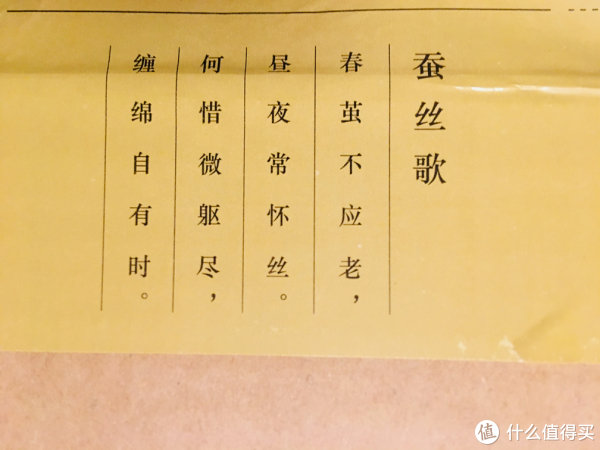 蚕丝歌
春茧不应老，
昼夜常怀丝。
何惜微躯尽，
缠绵自有时。
值 什么值得买